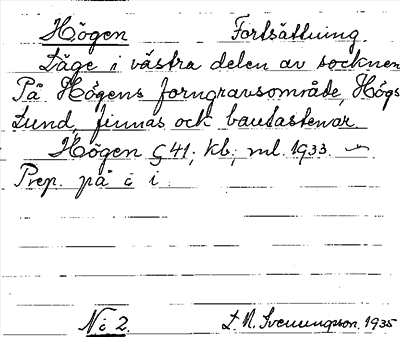 Högen Fortsättning.
Läge i västra delen av socknen
På Högens forngravsområde, Högs
Lund, finnas ock bautastenar.
Högen G 41; kb; ml. 1933.
Prep. på i
No 2. L. N. Svenungsson. 1935